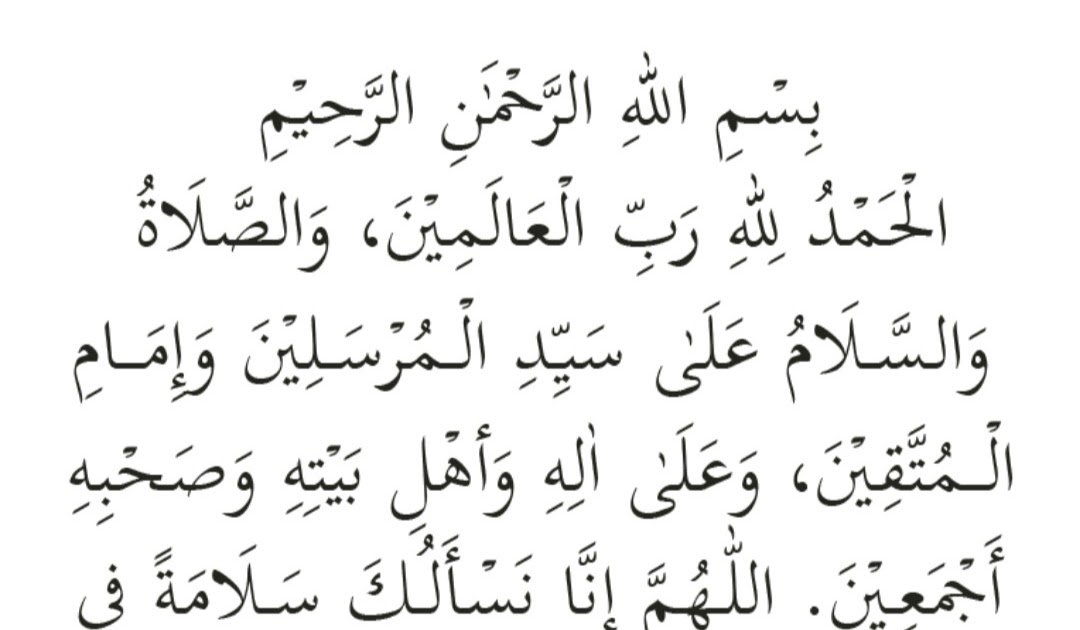 بِسْمِ اللهِ الرَّحْمٰنِ الرَّحِيْمِ
الْحَمْدُ لِلهِ رَبِّ الْعَالَمِيْنَ، وَالصَّلَاةُ
وَالسَّلَامُ عَلَىٰ سَيِّدِ الْمُرْسَلِيْنَ وَإِمَامِ
الْمُتَّقِيْنَ، وَعَلَىٰ اٰلِهِ وَأَهْلِ بَيْتِهِ وَصَحْبِهِ
أَجْمَعِيْنَ. اللّٰهُمَّ إِنَّا نَسْأَلُكَ سَلَامَةً فِي